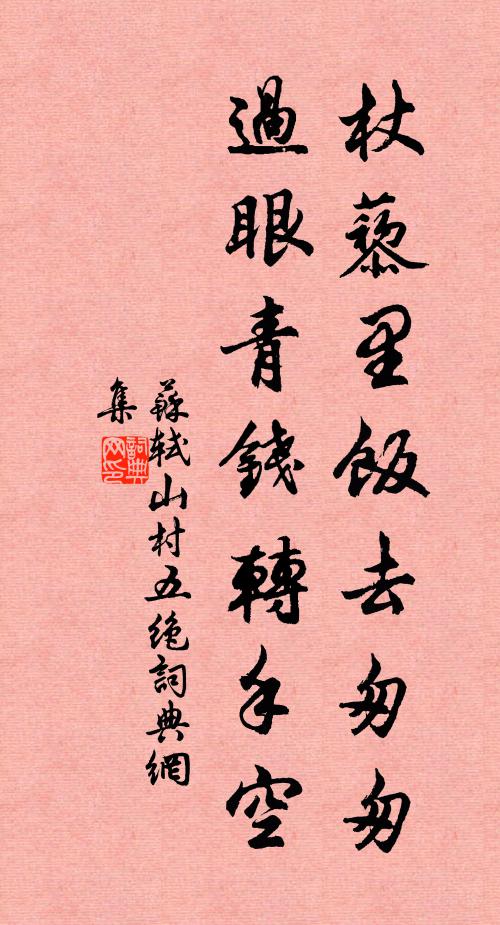 杖藜里飯去匆匆
過眼青錢轉手空
蘇軾山村五絶詞典網
集
詞典
网印